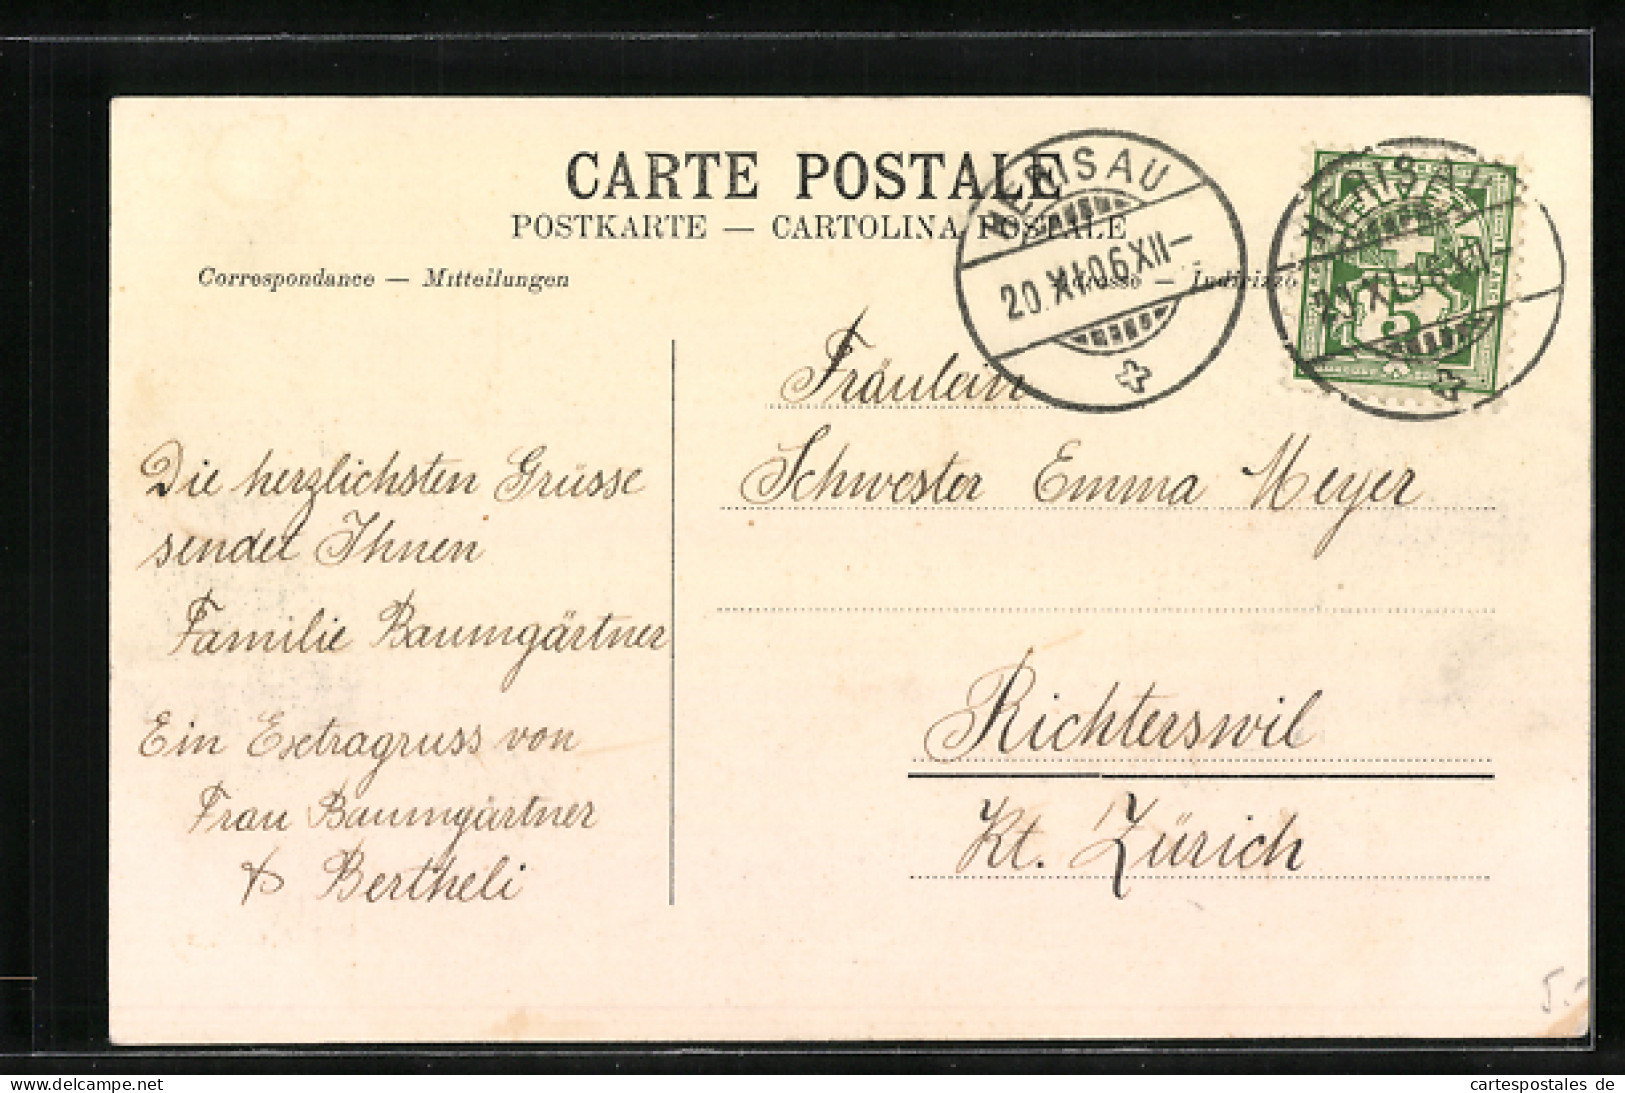 CARTE POSTALE
POSTKARTE — CARTOLINA POSTALE
Correspondance — Mitteilungen
— Indirizzo
HERISAU
20.XI.06 XII—
HERISAU
20.XI.06 XII—
HELVETIA
FRANCO
5
Die herzlichsten Grüsse
sendet Ihnen
Familie Baumgärtner
Ein Extragruss von
Frau Baumgärtner
& Bertheli
Fräulein
Schwester Emma Meyer
Richterswil
Kt. Zürich
5.-
www.delcampe.net
cartespostales de